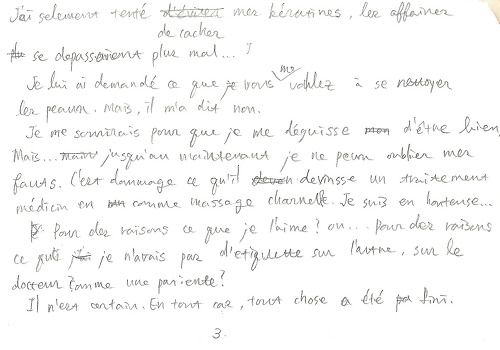 J'ai selement tenté d'éviter mes kératines, les affaires
de cacher
se depassaient plus mal...
me
Je lui ai demandé ce que je vous voulez à se nettoyer
les peaux. Mais, il m'a dit non.
Je me sourirais pour que je me déguisse d'être bien,
Mais... jusqu'au maintenant je ne peux oublier mes
fauts. C'est dommage ce qu'il devinsse un traitement
médicin en comme massage charnelle. Je suis en honteuse...
Pour des raisons ce que je l'aime? ou... Pour des raisons
ce qu'il je n'avais pas d'etiquette sur l'autre, sur le
docteur comme une pariente?
Il n'est certain. En tout cas, tout chose a été fini.
3.